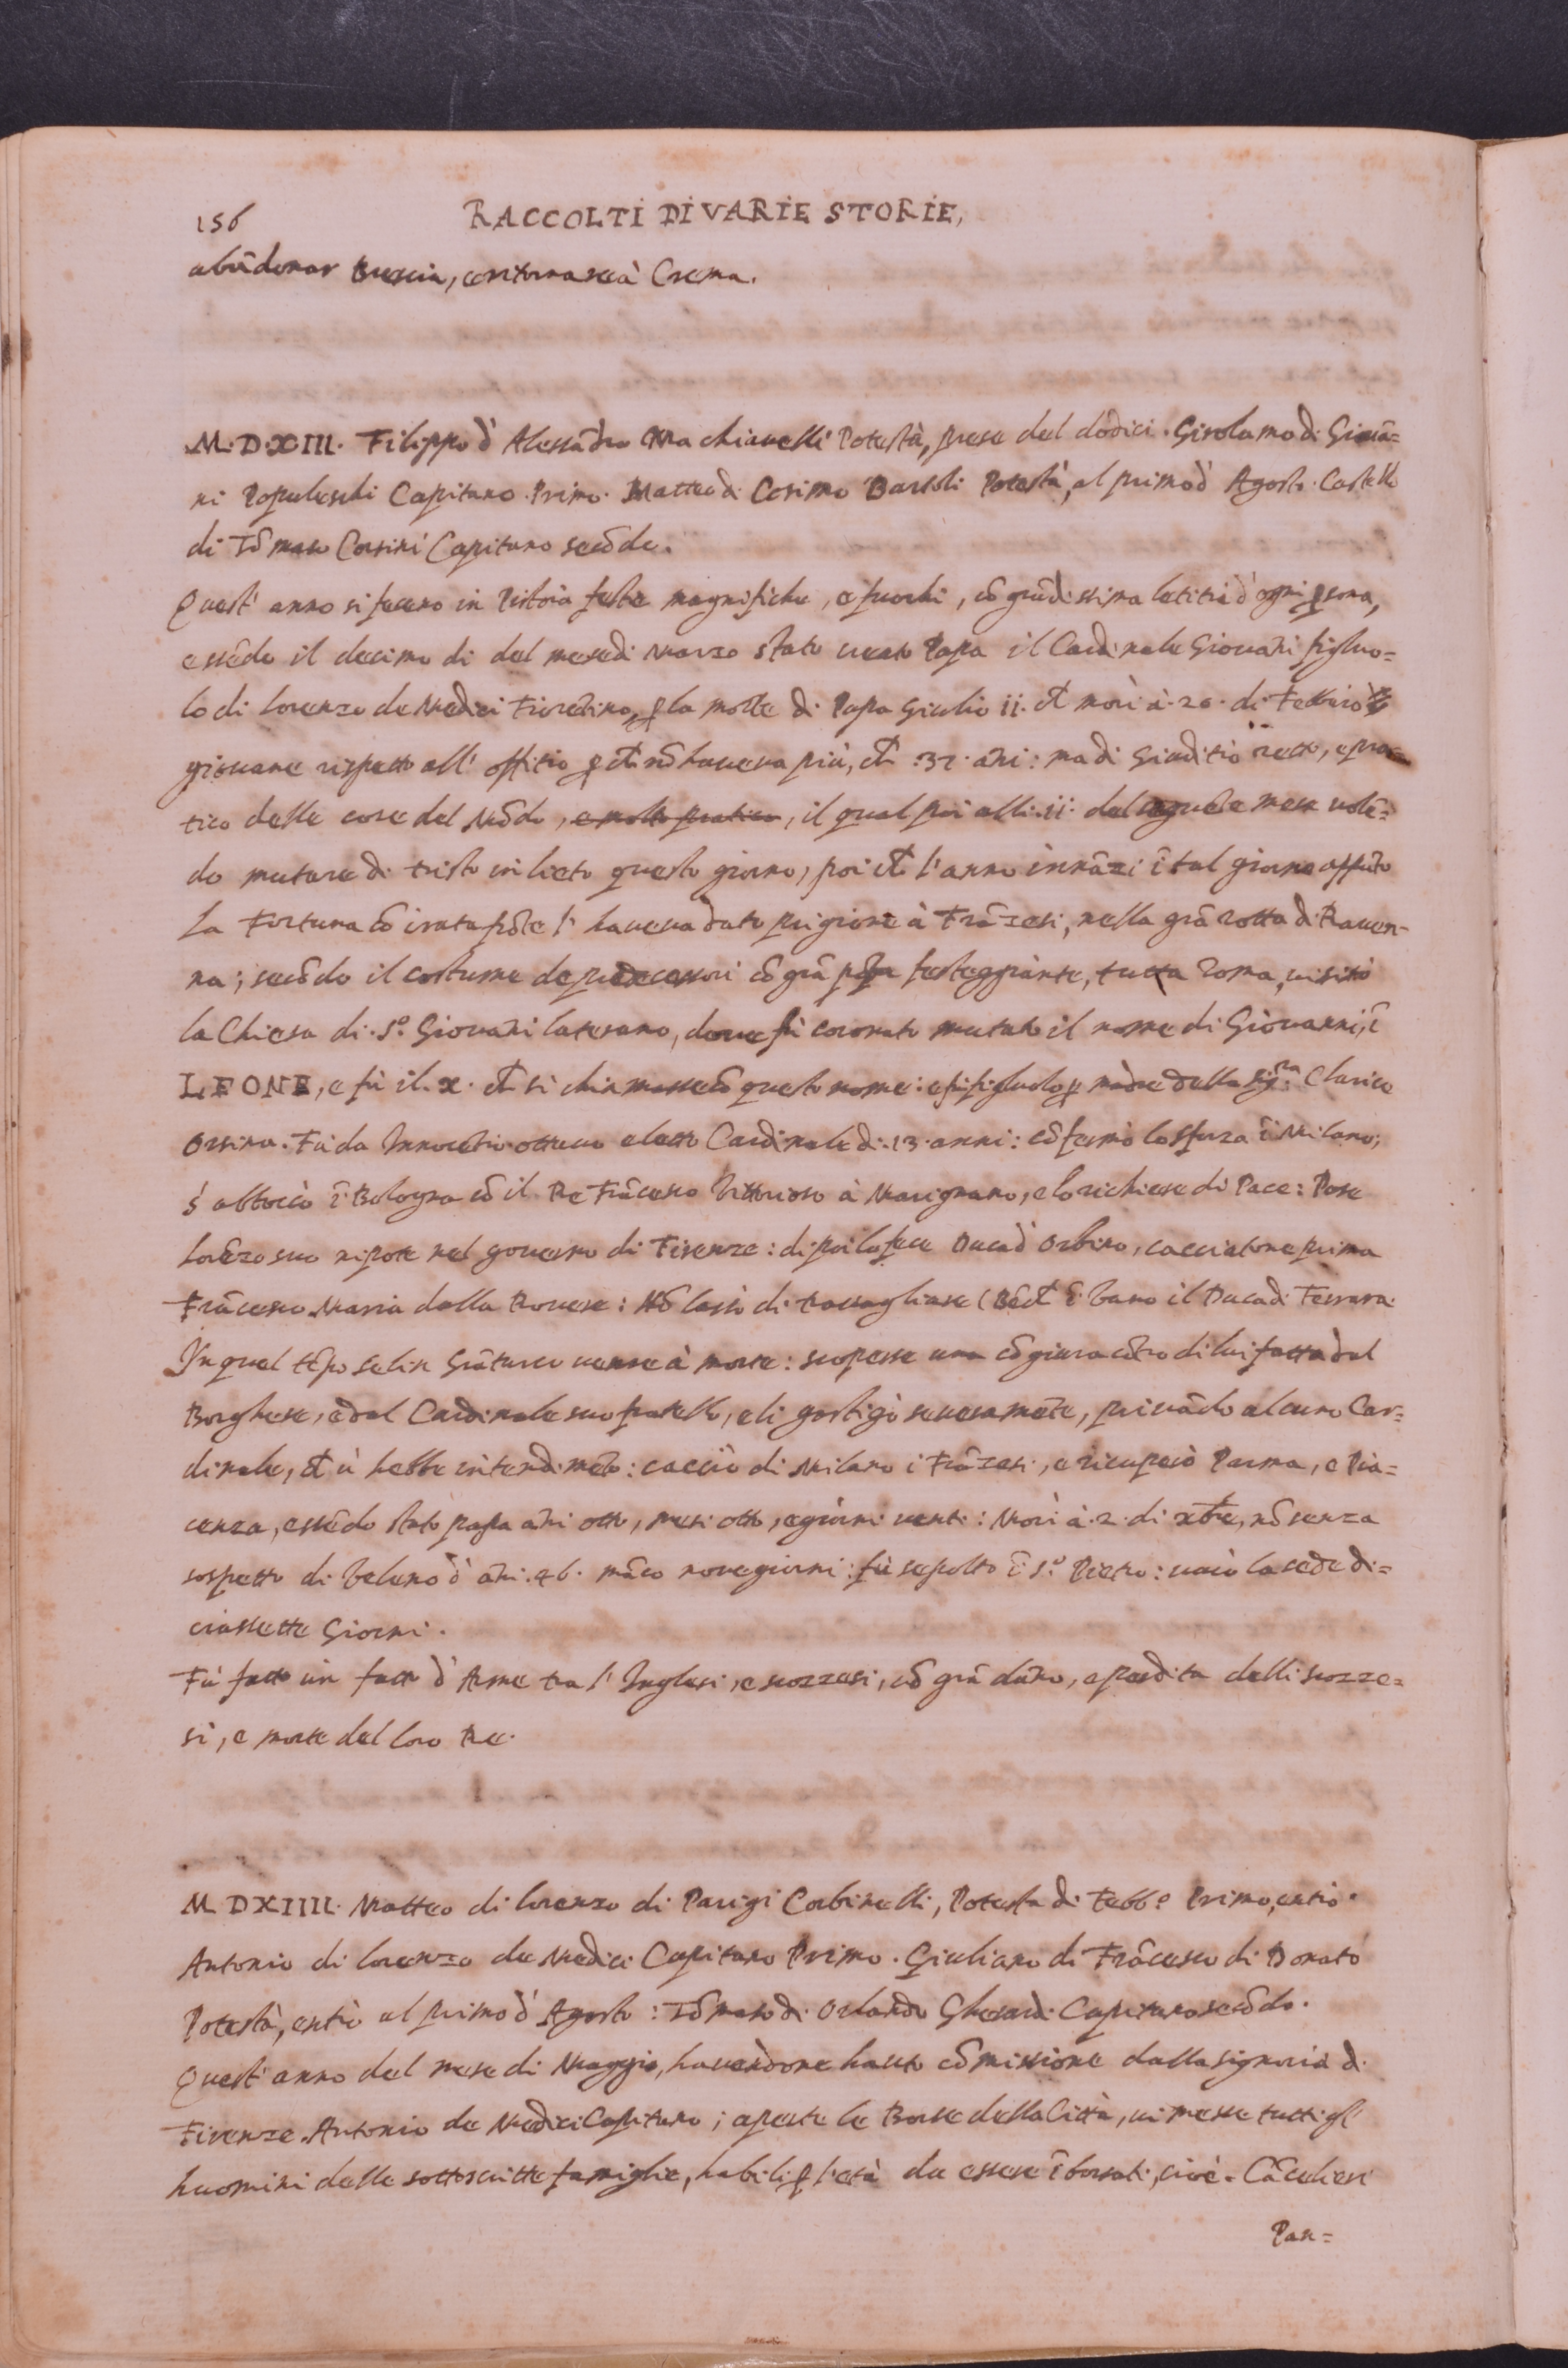 156
RACCOLTI DI VARIE STORIE,
abādonar Brescia, e ritornare à Crema.
M·D·XIII· Filippo d' Alessādro Machiavelli Potestà, prese del dodici. Girolamo di Giovā=
ni Popoleschi Capitano Primo. Matteo di Cosimo Bartoli Potestà, al primo d' Agosto. Castello
di Tōmaso Corsini Capitano secōdo.
Quest' anno si fecero in Pistoia feste magnifiche, e fuochi, cō grādissima letitia d' ogni ꝑsona,
essēdo il decimo di del mese di Marzo stato creato Papa il Cardinale Giovāni figliuo=
lo di Lorenzo de Medici Fiorētino, ꝑ la morte di Papa Giulio ii. ch̄ morì à 20. di Febbraro
giovane rispetto all' offitio ꝑch̄ nō haveva più, ch̄ .37. āni: ma di Giuditio retto, e pra=
tico delle cose del Mōdo, e molto pratico, il qual poi alli .ii. del seguēte mese volē=
do mutare di tristo in lieto questo giorno, poi ch̄ l' anno innāzi ī tal giorno appūto
la Fortuna cō irata frōte l' haveva dato prigione à Frāzesi, nella grā rotta di Raven-
na; secōdo il costume de predecessori cō grā pōpa festeggiante, tutta Roma, visitò
la Chiesa di S.º Giovāni laterano, dove fù coronato mutato il nome di Giovanni, ī
LEONE, e fù il x. ch̄ si chiamasse cō questo nome: e fù figliuolo ꝑ madre della Sig.ra Clarice
Orsina. Fù da Innocētio ottavo eletto Cardinale di .13. anni: cōfermò lo Sforza ī Milano;
s' abboccò ī Bologna cō il Re Frācesco Vittorioso à Marignano, e lo richiese di Pace: Pose
Lorēzo suo nipote nel governo di Firenze: di poi lo fece Duca d' Urbino, cacciatone prima
Frācesco Maria dalla Rovere: Nō lassò di travagliare (Bēch̄ ī vano il Duca di Ferrara.
In quel tēpo Selin Grāturco venne à morte: scoperse una cōgiura cōtro di lui fatta dal
Borghese, e dal Cardinale suo fratello, e li gastigò severamēte, privādo alcuno Car=
dinale, ch̄ vi hebbe intendimēto: cacciò di Milano i Frāzesi, e ricuperò Parma, e Pia=
cenza, essēdo stato papa āni otto, mesi otto, e giorni venti: Morì à .2. di xbr̄e, nō senza
sospetto di Veleno d' āni .46. māco nove giorni: fù sepolto ī S.º Pietro: vacò la sede di=
ciassette Giorni.
Fù fatto un fatto d' Arme tra l' Inglesi, e scozzesi, cō grā dāno, e perdita delli scozze=
si, e morte del loro Re.
M DXIIII. Matteo di Lorenzo di Parigi Corbinelli, Potestà di Febb.º Primo, entrò.
Antonio di Lorenzo de Medici Capitano Primo. Giuliano di Frācesco di Donato
Potestà, entrò al primo d' Agosto: Tōmaso di Orlando Gherardi Capitano secōdo.
Quest' anno del mese di Maggio, havendone hauto cōmissione dalla signoria di
Firenze Antonio de Medici Capitano; aperte le Borse della Città, vi messe tutti gl'
huomini delle sottoscritte famiglie, habili ꝑ l' età da essere īborsati, cioè. Cācelieri
Pan=